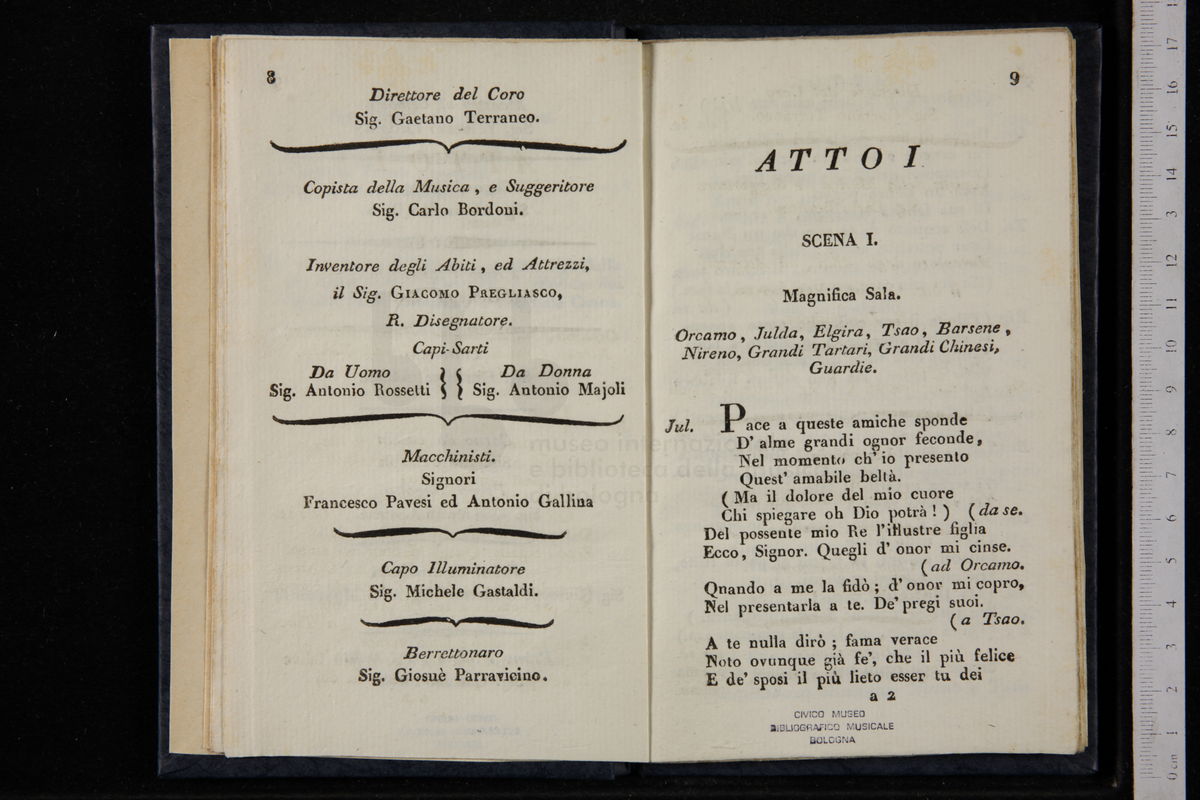 8
Direttore del Coro
Sig. Gaetano Terraneo.
Copista della Musica , e Suggeritore
Sig. Carlo Bordoni.
Inventore degli Abiti , ed Attrezzi,
il Sig. GIACOMO PREGLIASCO,
R. Disegnatore.
Capi-Sarti
Da Uomo } { Da Donna
Sig. Antonio Rossetti } { Sig. Antonio Majoli
Macchinisti.
Signori
Francesco Pavesi ed Antonio Gallina
Capo Illuminatore
Sig. Michele Gastaldi.
Berrettonaro
Sig. Giosuè Parravicino.
9
ATTO I
SCENA I.
Magnifica Sala.
Orcamo , Julda, Elgira, Tsao, Barsene ,
Nireno, Grandi Tartari, Grandi Chinesi,
Guardie.
Jul. Pace a queste amiche sponde
D' alme grandi ognor feconde,
Nel momento ch' io presento
Quest' amabile beltà.
( Ma il dolore del mio cuore
Chi spiegare oh Dio potrà ! ) ( da se.
Del possente mio Re l'illustre figlia
Ecco, Signor. Quegli d' onor mi cinse.
( ad Orcamo.
Qnando a me la fidò ; d' onor mi copro,
Nel presentarla a te. De' pregi suoi.
( a Tsao.
A te nulla dirò ; fama verace
Noto ovunque già fe', che il più felice
E de' sposi il più lieto esser tu dei
a 2
CIVICO MUSEO
BIBLIOGRAFICO MUSICALE
BOLOGNA
museo internazio
e biblioteca della
bologna
0 cm 1 2 3 4 5 6 7 8 9 10 11 12 13 14 15 16 17